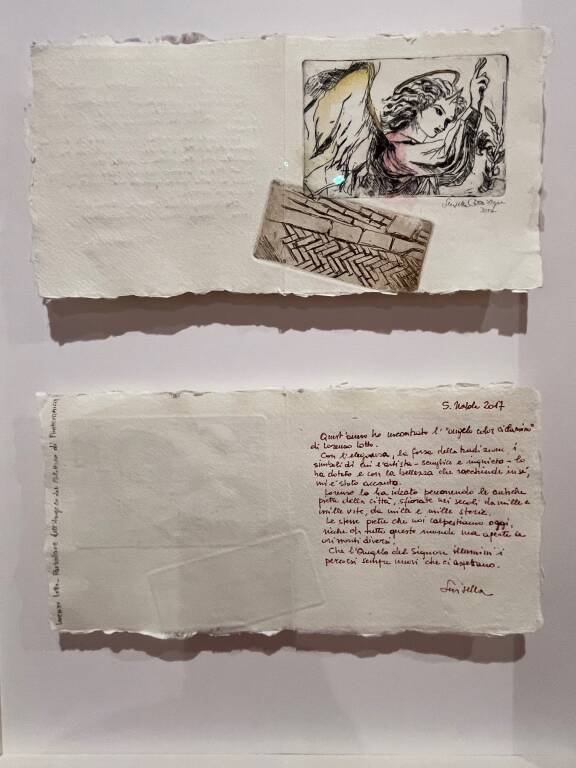 2017
S. Natale 2017
Quest'anno ho incontrato l'"angelo color ciclamino"
di Lorenzo Lotto.
Con l'eleganza, la forza della tradizione, i
simboli di cui l'artista - semplice e inquieto - lo
ha dotato e con la bellezza che racchiude in sé,
mi è stato accanto.
Forse lo ha ideato percorrendo le antiche
pietre della città, sfiorate nei secoli da mille e
mille vite, da mille e mille storie.
Le stesse pietre che noi calpestiamo oggi,
ricche di tutto questo mondo ma aperte a
orizzonti diversi.
Che l'Angelo del Signore illumini i
percorsi sempre nuovi che ci aspettano.
Lorenzo Lotto - Particolare dell'Angelo del Polittico di Ponteranica